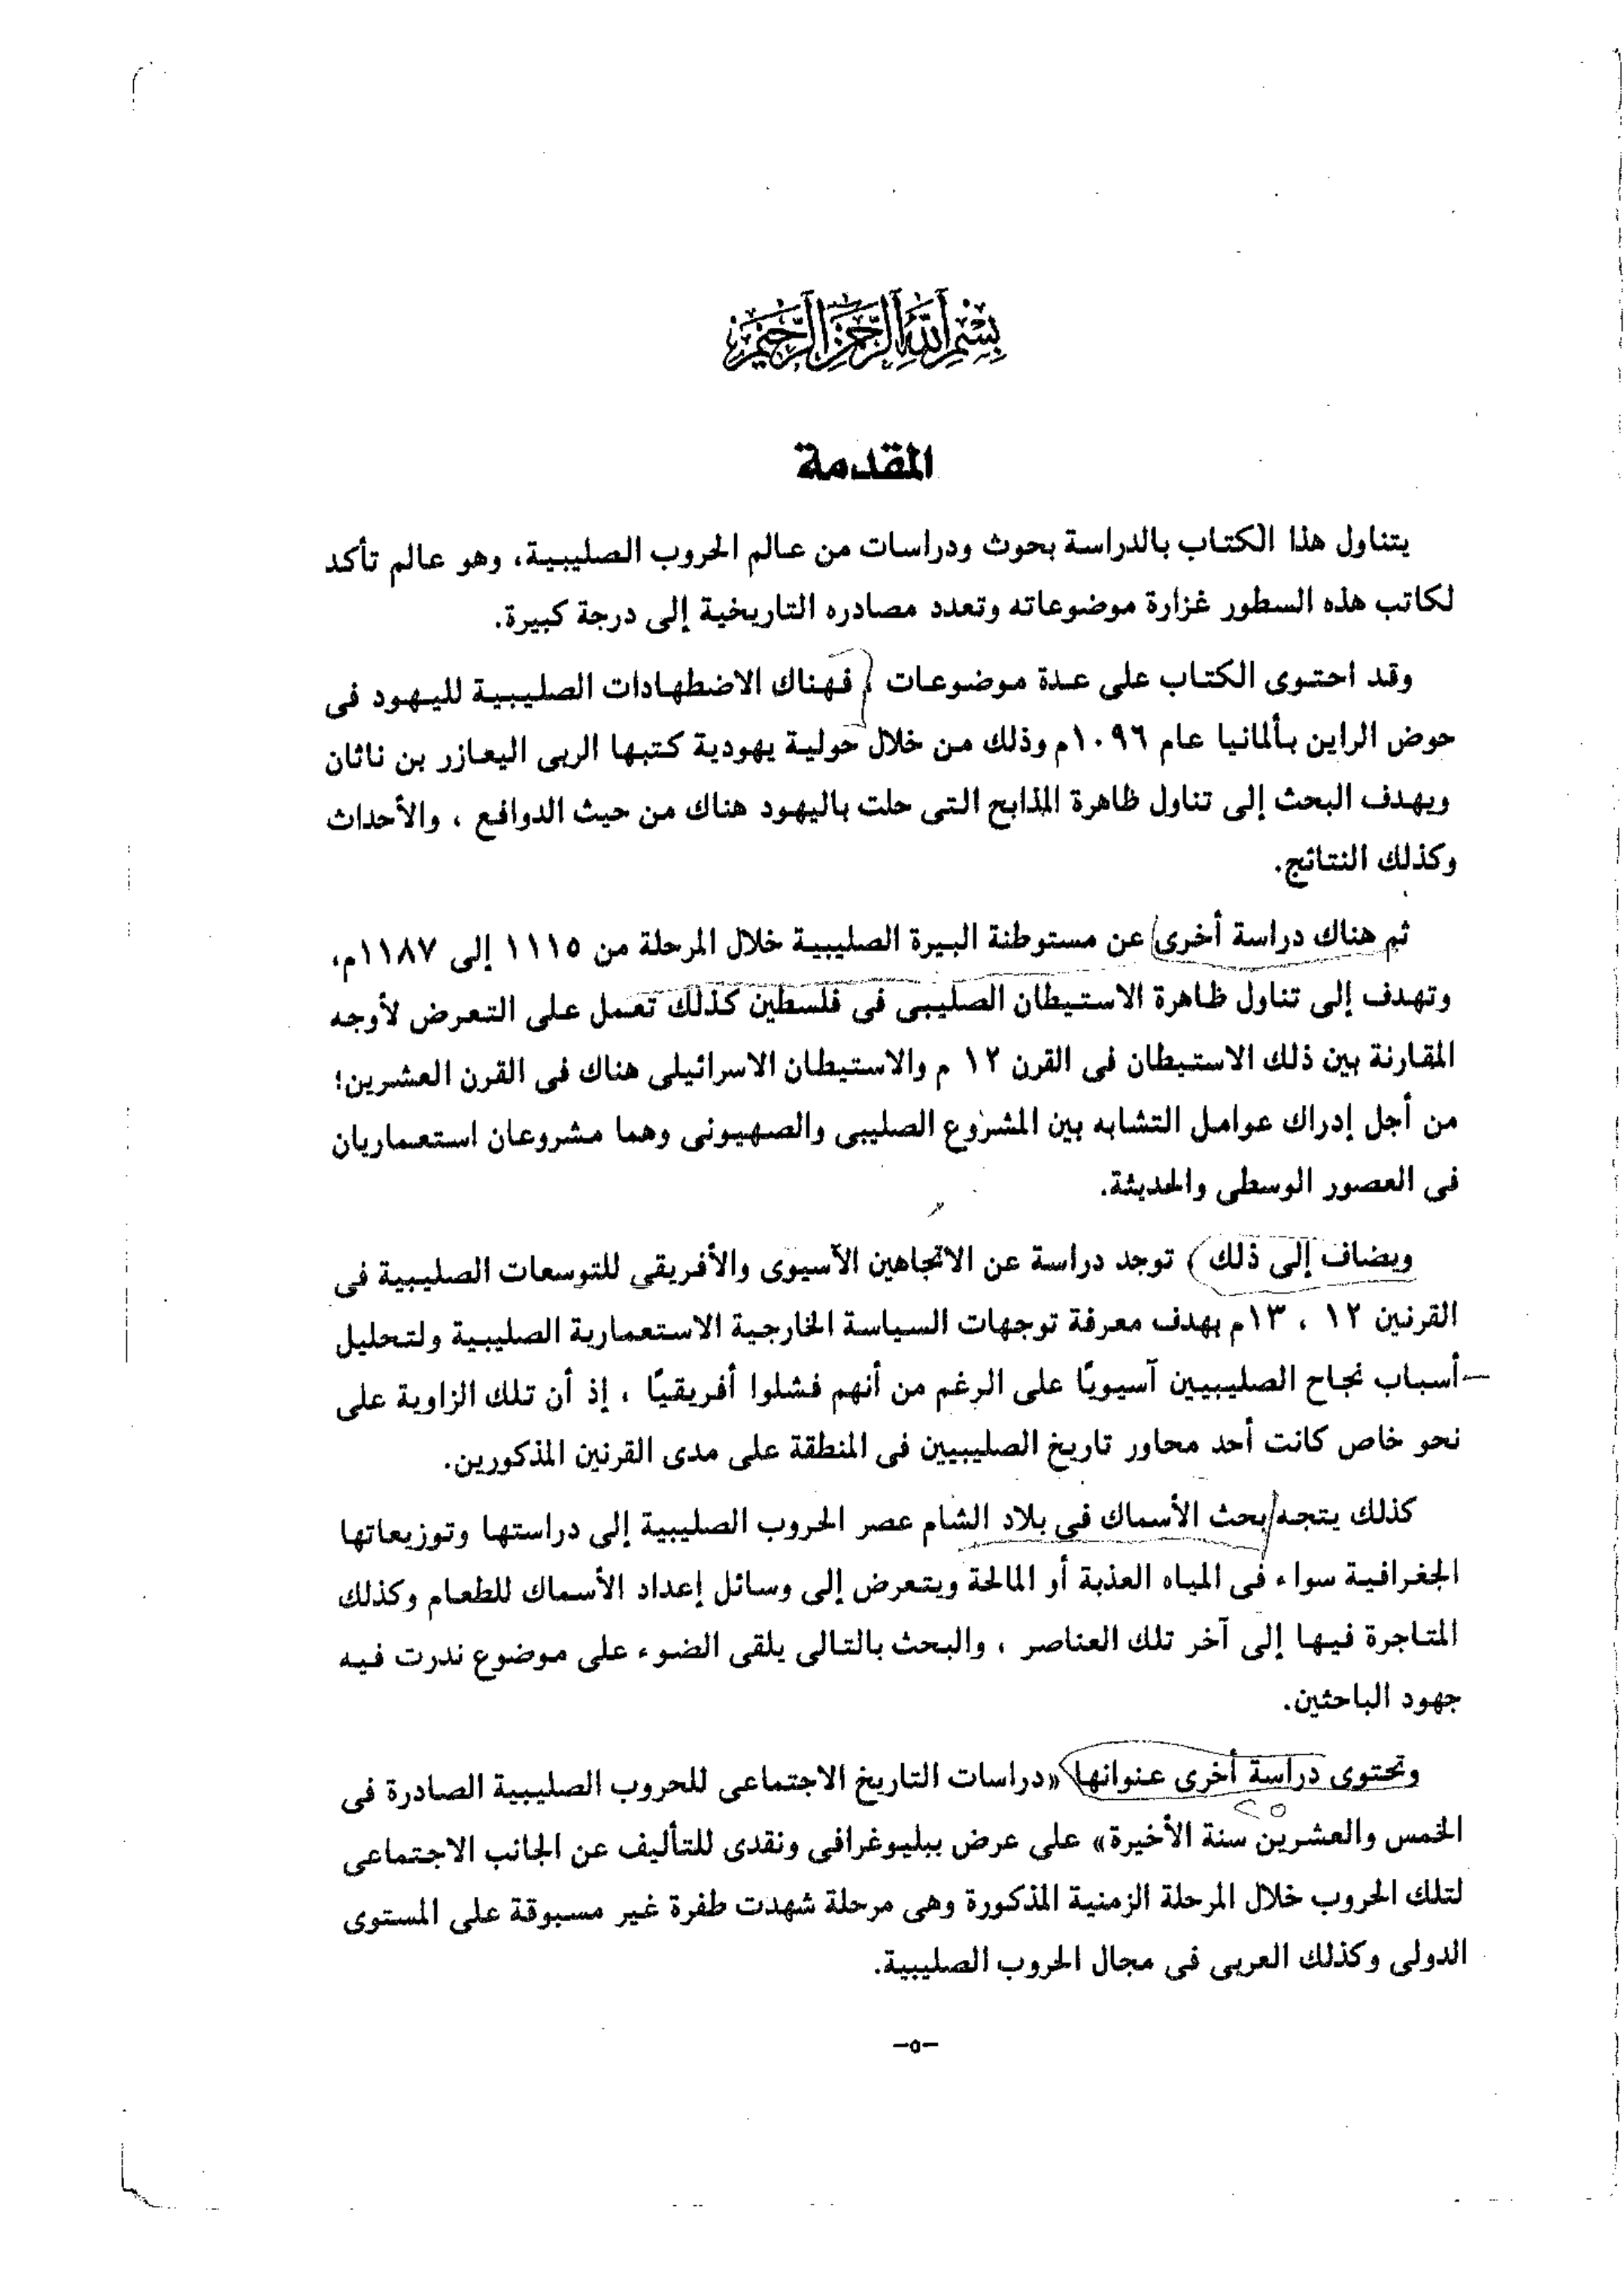 بسم الله الرحمن الرحيم
المقدمة
يتناول هذا الكتاب بالدراسة بحوث ودراسات من عالم الحروب الصليبية، وهو عالم تأكد
لكاتب هذه السطور غزارة موضوعاته وتعدد مصادره التاريخية إلى درجة كبيرة.
وقد احتوى الكتاب على عدة موضوعات ، فهناك الاضطهادات الصليبية لليهود فى
حوض الراين بألمانيا عام ١٠٩٦م وذلك من خلال حولية يهودية كتبها الربى اليعازر بن ناثان
ويهدف البحث إلى تناول ظاهرة المذابح التى حلت باليهود هناك من حيث الدوافع ، والأحداث
وكذلك النتائج.
ثم هناك دراسة أخرى عن مستوطنة البيرة الصليبية خلال المرحلة من ١١١٥ إلى ١١٨٧م،
وتهدف إلى تناول ظاهرة الاستيطان الصليبى فى فلسطين كذلك تعمل على التعرض لأوجه
المقارنة بين ذلك الاستيطان فى القرن ١٢ م والاستيطان الاسرائيلى هناك فى القرن العشرين؛
من أجل إدراك عوامل التشابه بين المشروع الصليبى والصهيونى وهما مشروعان استعماريان
فى العصور الوسطى والحديثة.
ويضاف إلى ذلك ، توجد دراسة عن الاتجاهين الآسيوى والأفريقى للتوسعات الصليبية فى
القرنين ١٢ ، ١٣م بهدف معرفة توجهات السياسة الخارجية الاستعمارية الصليبية ولتحليل
أسباب نجاح الصليبيين آسيويًا على الرغم من أنهم فشلوا أفريقيًا ، إذ أن تلك الزاوية على
نحو خاص كانت أحد محاور تاريخ الصليبيين فى المنطقة على مدى القرنين المذكورين.
كذلك يتجه بحث الأسماك فى بلاد الشام عصر الحروب الصليبية إلى دراستها وتوزيعاتها
الجغرافية سواء فى المياه العذبة أو المالحة ويتعرض إلى وسائل إعداد الأسماك للطعام وكذلك
المتاجرة فيها إلى آخر تلك العناصر ، والبحث بالتالى يلقى الضوء على موضوع ندرت فيه
جهود الباحثين.
وتحتوى دراسة أخرى عنوانها «دراسات التاريخ الاجتماعى للحروب الصليبية الصادرة فى
الخمس والعشرين سنة الأخيرة» على عرض ببليوغرافى ونقدى للتأليف عن الجانب الاجتماعى
لتلك الحروب خلال المرحلة الزمنية المذكورة وهى مرحلة شهدت طفرة غير مسبوقة على المستوى
الدولى وكذلك العربى فى مجال الحروب الصليبية.
-٥-